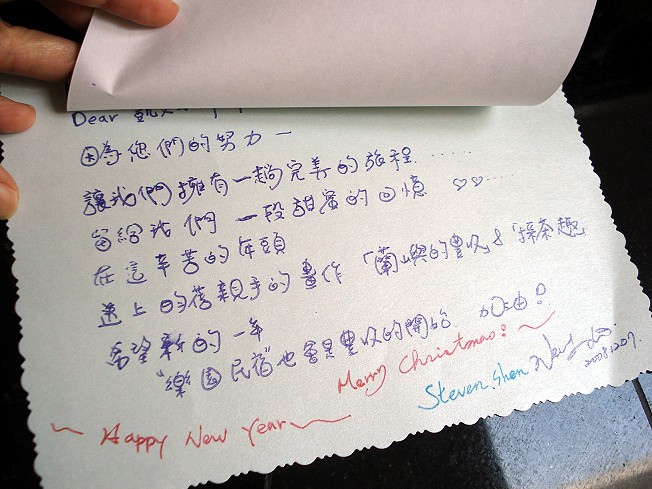 Dear 凱
因為您們的努力—
讓我們擁有一趟完美的旅程……
留給我們 一段甜蜜的回憶 ♡♡…
在這辛苦的年頭
送上 的舊親手的畫作「蘭嶼的豐收」&「採茶趣」
希望新的一年
"樂園民宿"也會是豐收的開始 加油!
Merry Christmas! ~
Steven.Shen
2008.12.07.
~ Happy New Year ~